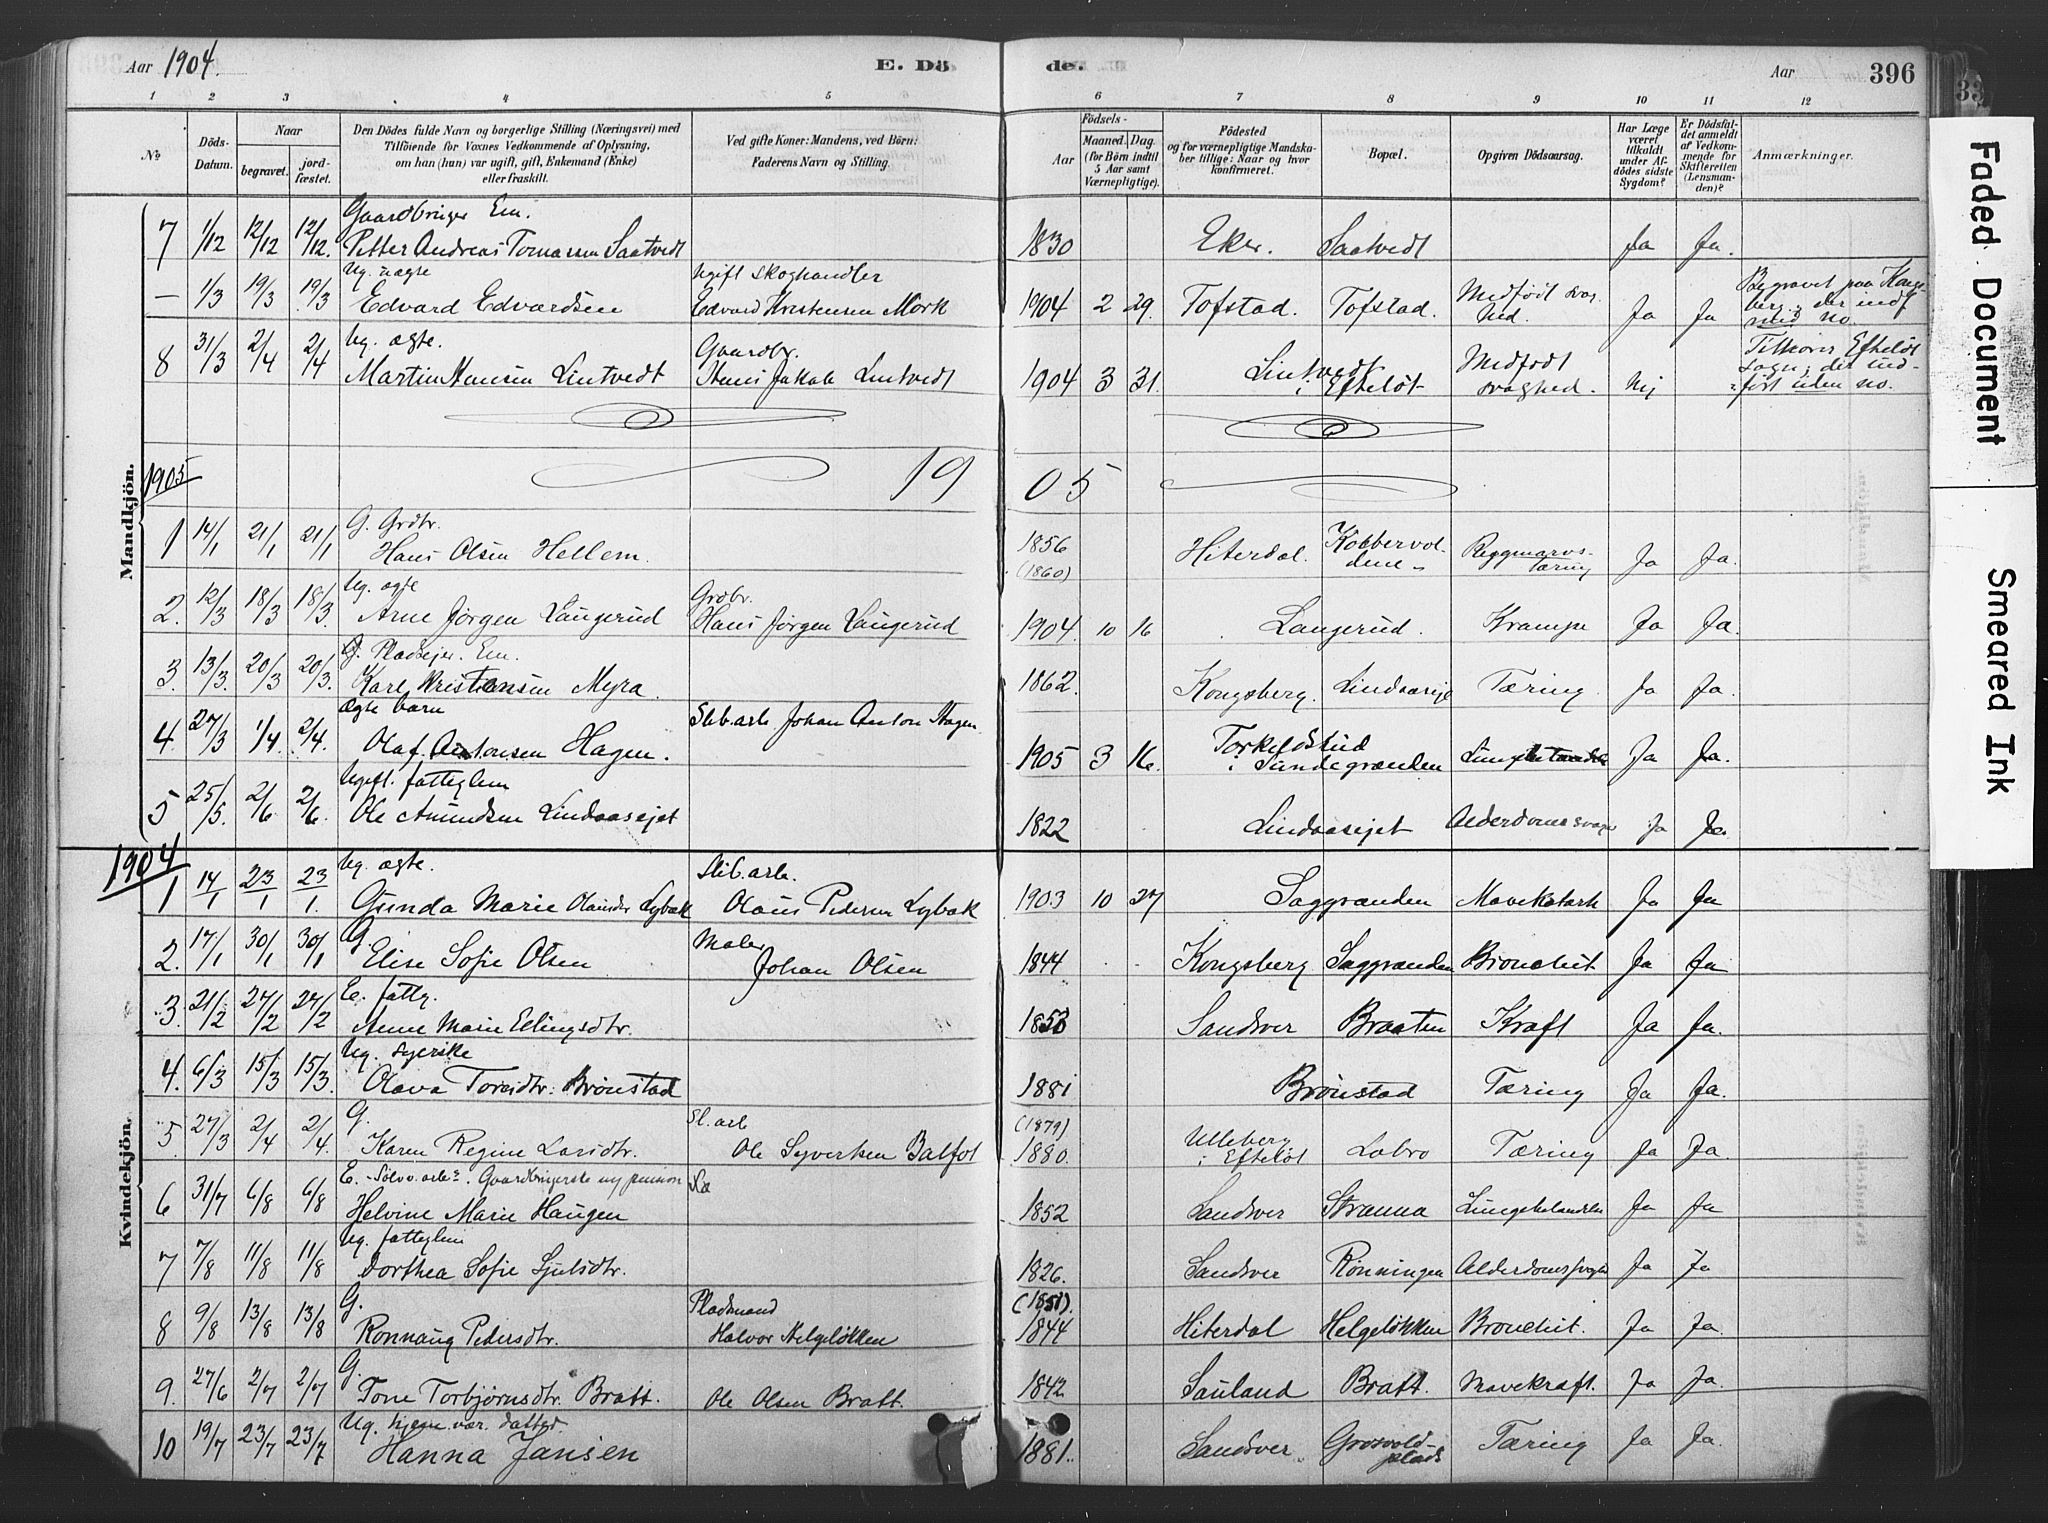 Aar 1904. E. Dö de. Aar 396
1 2 3 4 5 6 7 8 9 10 11 12
No
Döds-Datum.
Naar
begravet.
jord-fæstet.
Den Dödes fulde Navn og borgerlige Stilling (Næringsvei) med
Tilföiende for Voxnes Vedkommende af Oplysning,
om han (hun) var ugift, gift, Enkemand (Enke)
eller fraskilt.
Ved gifte Koner: Mandens, ved Börn:
Faderens Navn og Stilling.
Födsels-
Aar
Maaned. Dag.
(for Börn indtil
5 Aar samt
Værnepligtige).
Födested
og for værnepligtige Mandska-
ber tillige: Naar og hvor
konfirmeret.
Bopæl.
Opgiven Dödsaarsag.
Har Læge
været
tilkaldt
under Af-
dödes sidste
Sygdom?
Er Dödsfal-
det anmeldt
af Vedkom-
mende for
Skifteretten
(Lensman-
den)?
Anmærkninger.
Mandkjön.
Gaardbruger Em.
7 1/12 12/12 12/12. Petter Andreas Tomassen Saatvedt 1830 Eker. Saatvedt Ja Ja.
Ug. uægte Ugift skoghandler
- 1/3 19/3 19/3 Edvard Edvardsen Edvard Kristensen Mørk 1904 2 29. Tofstad. Tofstad. Medfødt svaghed. Ja Ja Begravet paa Kongsberg; der indf. med no.
Ug. ægte. Gaardbr.
8 31/3 2/4 2/4 Martin Hansen Lintvedt Hans Jakob Lintvedt 1904 3 31. Lintvedt i Efteløt Medfødt svaghed. Nej Tilhører Efteløt sogn; der indført uden no.
1905 19 05
G. Grdbr.
1 14/1 21/1 21/1 Hans Olsen Hellem. 1856 (1860) Hiterdal. Kobbervoldene Ryggmarvstæring Ja Ja.
Ug. ægte Grdbr.
2. 12/3 18/3 18/3. Arne Jørgen Langerud Hans Jørgen Langerud 1904. 10 16 Langerud. Krampe Ja Ja.
G. Pladsejer. Em.
3. 13/3. 20/3 20/3. Karl Kristensen Myra. 1862. Kongsberg. Lindaaseje Tæring. Ja Ja.
Ægte barn Slib.arb. Johan Anton Hagen.
4. 27/3 1/4. 2/4. Olaf Antonsen Hagen. 1905 3 16. Torkildstud i Sundegrænden Ja Ja.
Ugift. fattiglem
5 25/5. 2/6 2/6. Ole Amundsen Lindaasejet 1822 Lindaasejet Alderdomssvagh Ja Ja.
Kvindekjön.
1904
Ug. ægte. Slib.arb.
1 14/1 23/1 23/1. Gunda Marie Olausdtr Lybæk Olaus Pedersen Lybæk 1903 10 27 Saggrænden Mavekatarh Ja Ja
G. Maler
2. 17/1 30/1 30/1 Elise Sofie Olsen Johan Olsen 1844 Kongsberg Saggrænden Bronchit. Ja Ja
E. fattg.
3. 21/2 27/2 27/2 Anne Marie Ellingsdtr. Sandsver Braaten Kræft Ja Ja.
Ug. syerske
4. 6/3 15/3 15/3. Olava Toresdtr. Brønstad 1881 Brønstad Tæring Ja Ja.
G. Sl.arb
5. 27/3 2/4 2/4. Karen Regine Larsdtr. Ole Syvertsen Balfot (1879) 1880. Ulleberg i Efteløt Labro Tæring Ja Ja.
E. Sølvv.arb. Gaardbrugerske og pension
6 31/7 6/8 6/8 Helvine Marie Haugen 1852 Sandsver Stranna Lungebetændelse Ja Ja
Ug. fattiglem
7 7/8 11/8 11/8 Dorthea Sofie Sjulsdtr. 1826. Sandsver Rønningen Alderdomssvaghe Ja Ja
G. Pladsmand
8 9/8 13/8 13/8 Ronnaug Pedersdtr. Halvor Helgeløkken (1851). 1844 Hiterdal Helgeløkken Bronchit. Ja Ja.
G.
9. 27/6 2/7 2/7. Tone Torbjørnsdtr. Bratt. Ole Olsen Bratt. 1842 Sauland Bratt. Mavekræft. Ja Ja.
Ug. hjemmevær. datter
10 19/7 23/7 23/7 Hanna Jansen 1881. Sandsver Grosvoldplads Tæring Ja Ja.
Faded Document
Smeared Ink